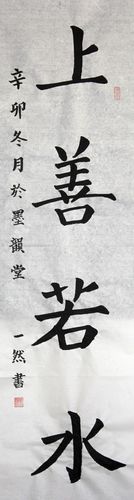 上善若水
辛卯冬月於墨韻堂
一然書